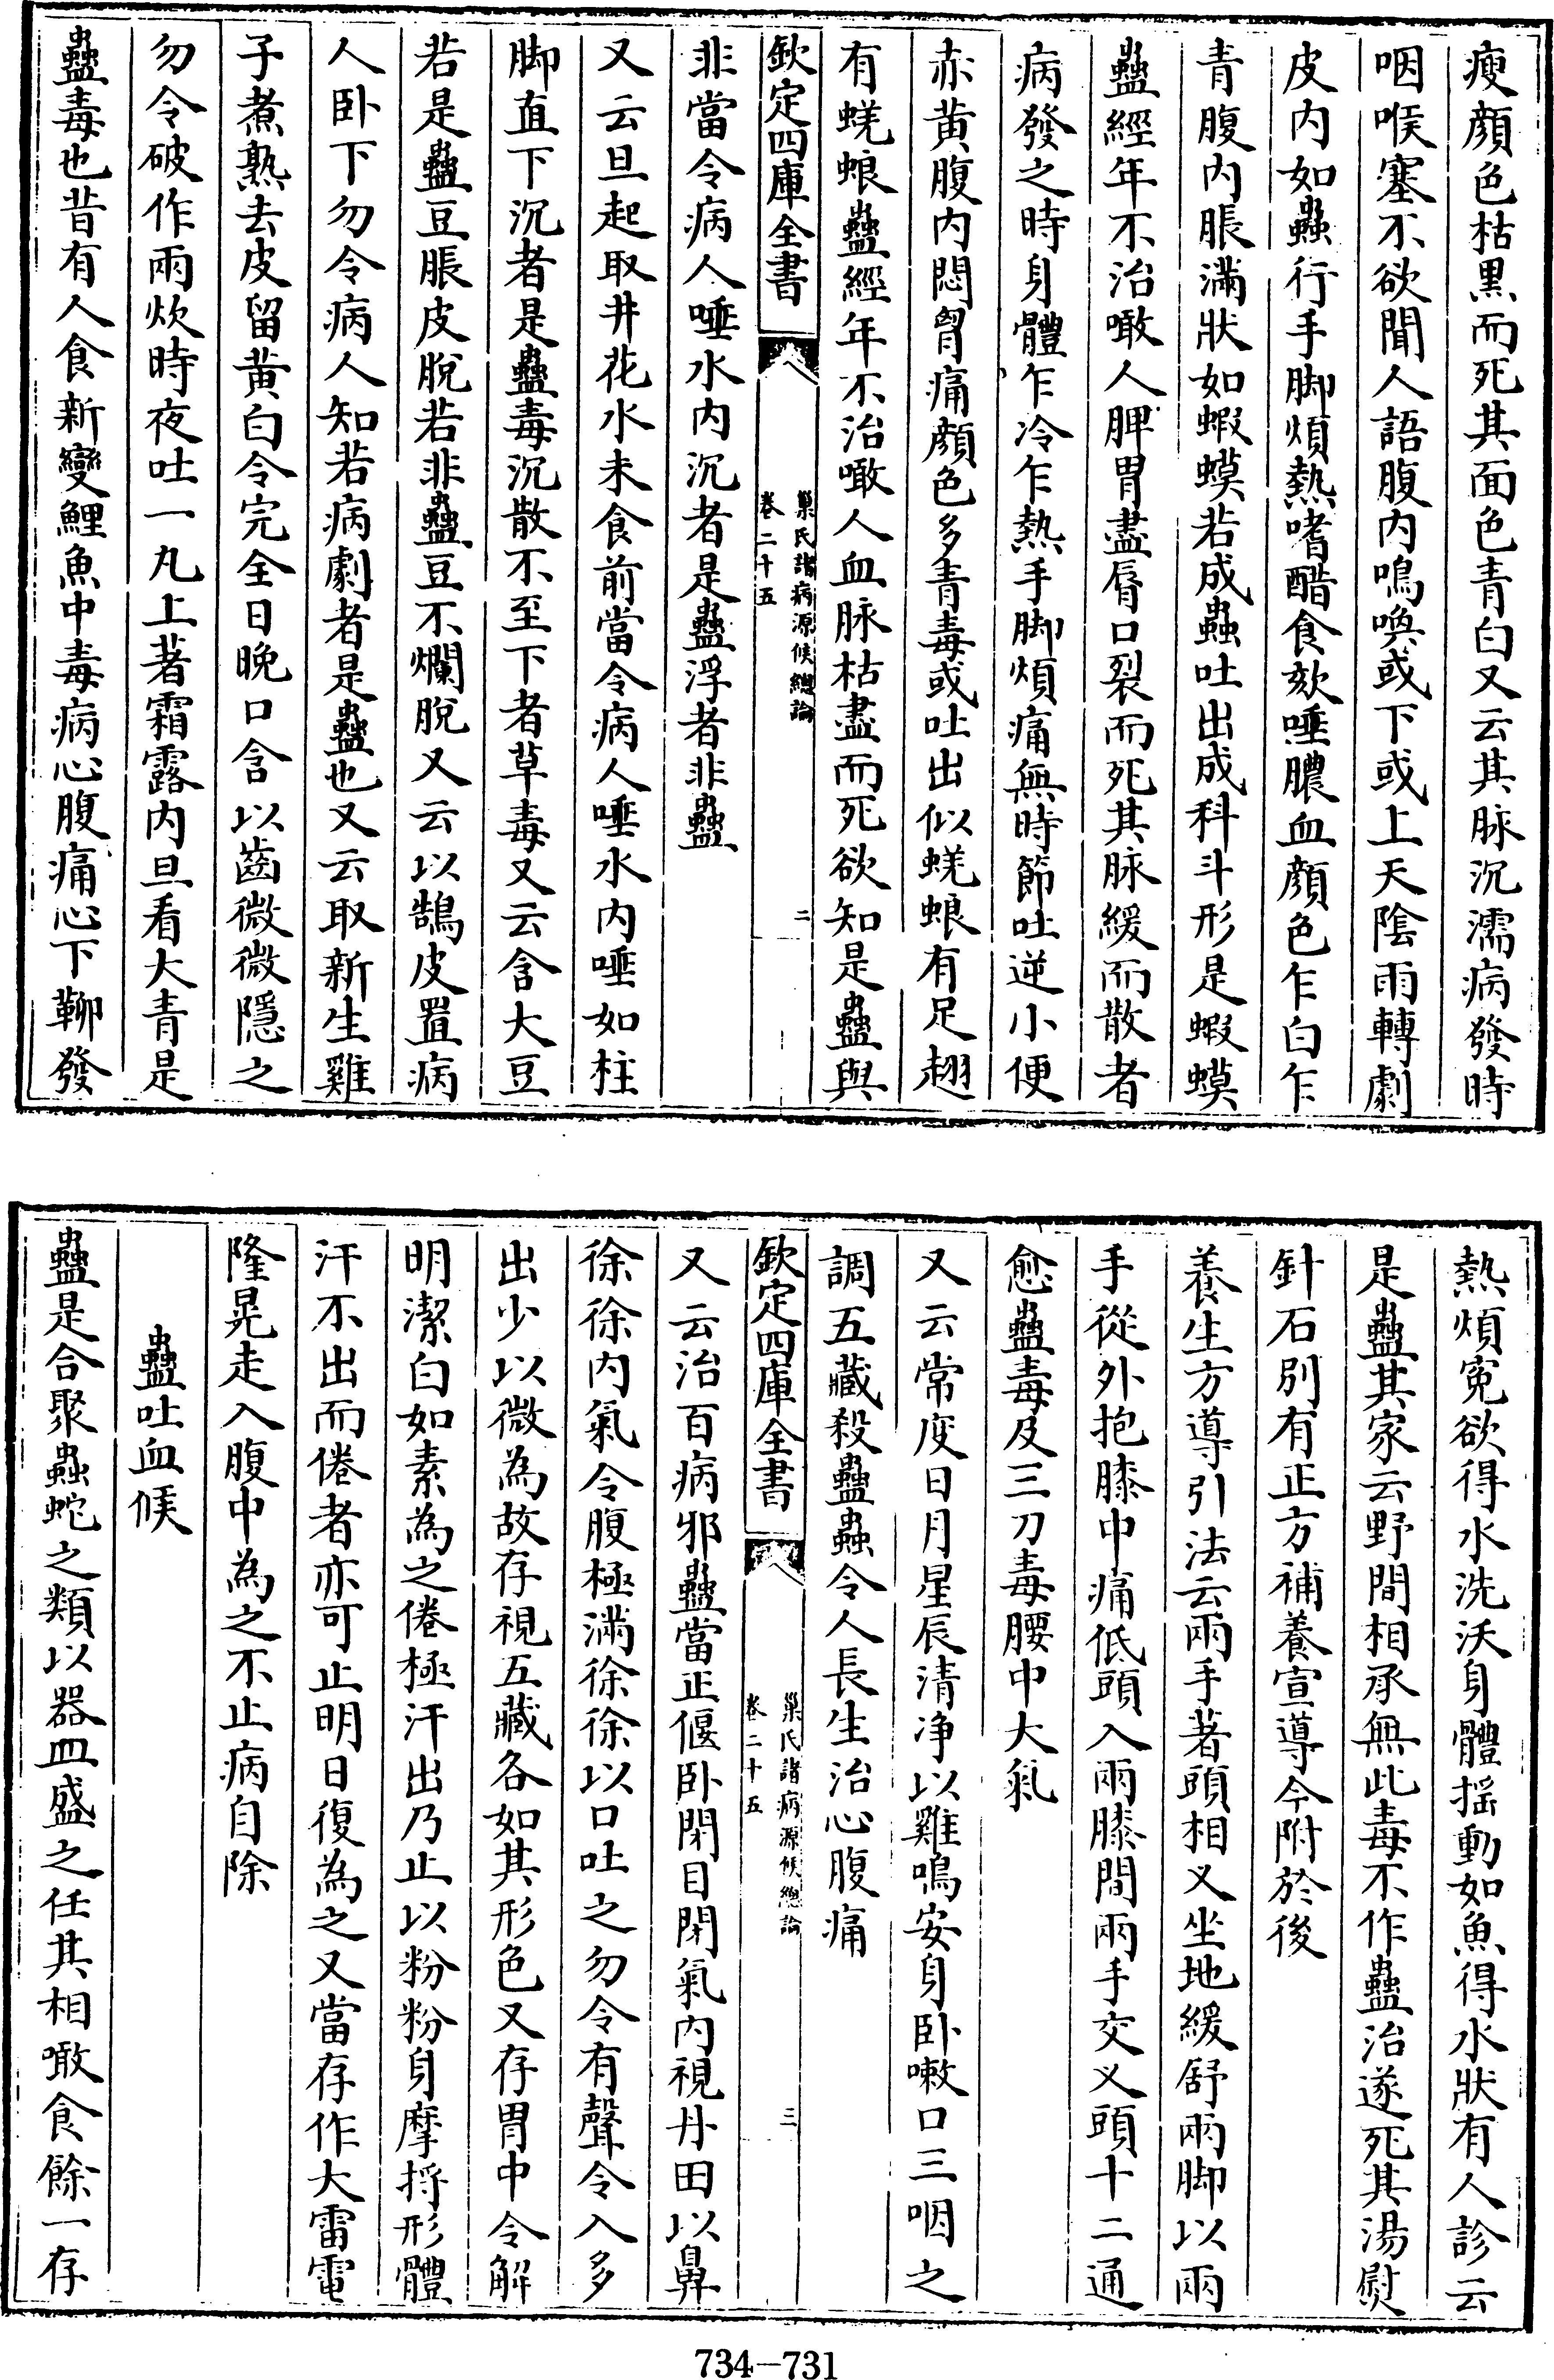 瘦顔色枯黒而死其面色青白又云其脉沉濡病發時
咽喉塞不欲聞人語腹内鳴喚或下或上天陰雨轉劇
皮内如蟲行手脚煩熱嗜醋食欬唾膿血顔色乍白乍
青腹内脹滿狀如蝦蟆若成蟲吐出成科斗形是蝦蟆
蠱經年不治噉人脾胃盡脣口裂而死其脉緩而散者
病發之時身體乍冷乍熱手脚煩痛無時節吐逆小便
赤黄腹内悶胷痛顔色多青毒或吐出似蜣蜋有足翅
有蜣蜋蠱經年不治噉人血脉枯盡而死欲知是蠱與
欽定四庫全書
巢氏諸病源候總論
卷二十五
二
非當令病人唾水内沉者是蠱浮者非蠱
又云旦起取井花水未食前當令病人唾水内唾如柱
脚直下沉者是蠱毒沉散不至下者草毒又云含大豆
若是蠱豆脹皮脫若非蠱豆不爛脫又云以鵠皮置病
人卧下勿令病人知若病劇者是蠱也又云取新生雞
子煮熟去皮留黄白令完全日晚口含以齒微微隱之
勿令破作兩炊時夜吐一丸上著霜露内旦看大青是
蠱毒也昔有人食新變鯉魚中毒病心腹痛心下鞕發
熱煩寃欲得水洗沃身體摇動如魚得水狀有人診云
是蠱其家云野間相承無此毒不作蠱治遂死其湯熨
針石别有正方補養宣導今附於後
養生方導引法云兩手著頭相叉坐地緩舒兩脚以兩
手從外抱膝中痛低頭入兩膝間兩手交叉頭十二通
愈蠱毒及三刀毒腰中大氣
又云常度日月星辰清净以雞鳴安身卧嗽口三咽之
調五藏殺蠱蟲令人長生治心腹痛
欽定四庫全書
巢氏諸病源候總論
卷二十五
三
又云治百病邪蠱當正偃卧閉目閉氣内視丹田以鼻
徐徐内氣令腹極滿徐徐以口吐之勿令有聲令入多
出少以微為故存視五藏各如其形色又存胃中令解
明潔白如素為之倦極汗出乃止以粉粉身摩捋形體
汗不出而倦者亦可止明日復為之又當存作大雷電
隆晃走入腹中為之不止病自除
蠱吐血候
蠱是合聚蟲蛇之類以器皿盛之任其相噉食餘一存
734-731